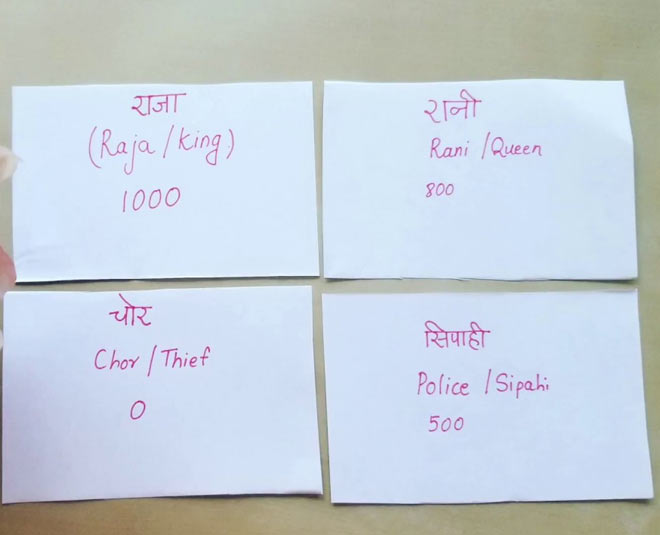 राजा
(Raja/king)
1000
रानी
Rani / Queen
800
चोर
Chor / Thief
0
सिपाही
Police / Sipahi
500